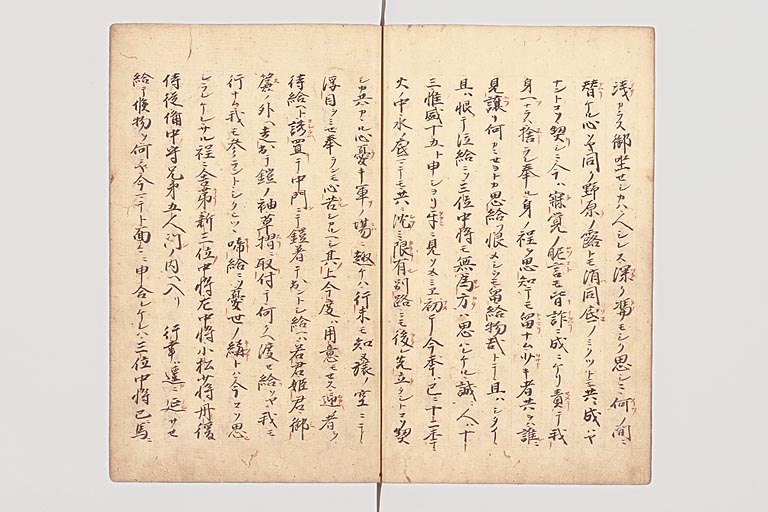 浅カラス御坐セシカハ人シレス深ク馮モシク思シニ何ノ間ニ
替ケル心ソヤ同ノ野原ノ露トモ消同底ノミクツトモ共ニ成ハヤ
ナントコソ契シニ今ハ寐覚ノ昵言モ皆詐ニ成ニケリ責テ我
身一ナラハ捨ラレ奉ル身ノ程ヲ思知テモ留ナム少キ者共ヲハ誰ニ
見譲リ何カニセヨトカ思給フ恨メシクモ留給物哉トテ且ハシタイ
且ハ恨テ泣給ニソ三位中将モ無為方ハ思ハレケル誠ニ人ハ十
三惟盛十五ト申シヨリ互ニ見ソメミエ初テ今年ハ已ニ十二年
火ノ中水ノ底ニテモ共ニ沈ミ限有別路ニモ後レ先立タシトコソ契
シカ共カヽル心憂キ軍ノ場ニ趣ケハ行末モ知ヌ旅ノ空ニテ
浮目ヲミセ奉ランモ心苦シカルヘシ其上今度ハ用意モセス迎者ヲ
待給ヘト誘置テ中門ニテ鎧着テ出ントシ給ヘハ若君姫君御
簾ノ外ヘ走出テ鎧ノ袖草摺ニ取付テ何クヘ渡セ給ソヤ我モ
行ナム我モ参ラントシタヒツヽ啼給ニソ憂世ノ絆トハ今コソ思
シラレケレサル程ニ舎弟新三位中将左中将小松少将丹後
侍従備中守兄弟五人門ノ内ヘ入リ 行幸ハ遥ニ延サセ
給テ候物ヲ何ニヤ今ニテト面々ニ申合レケレハ三位中将已馬